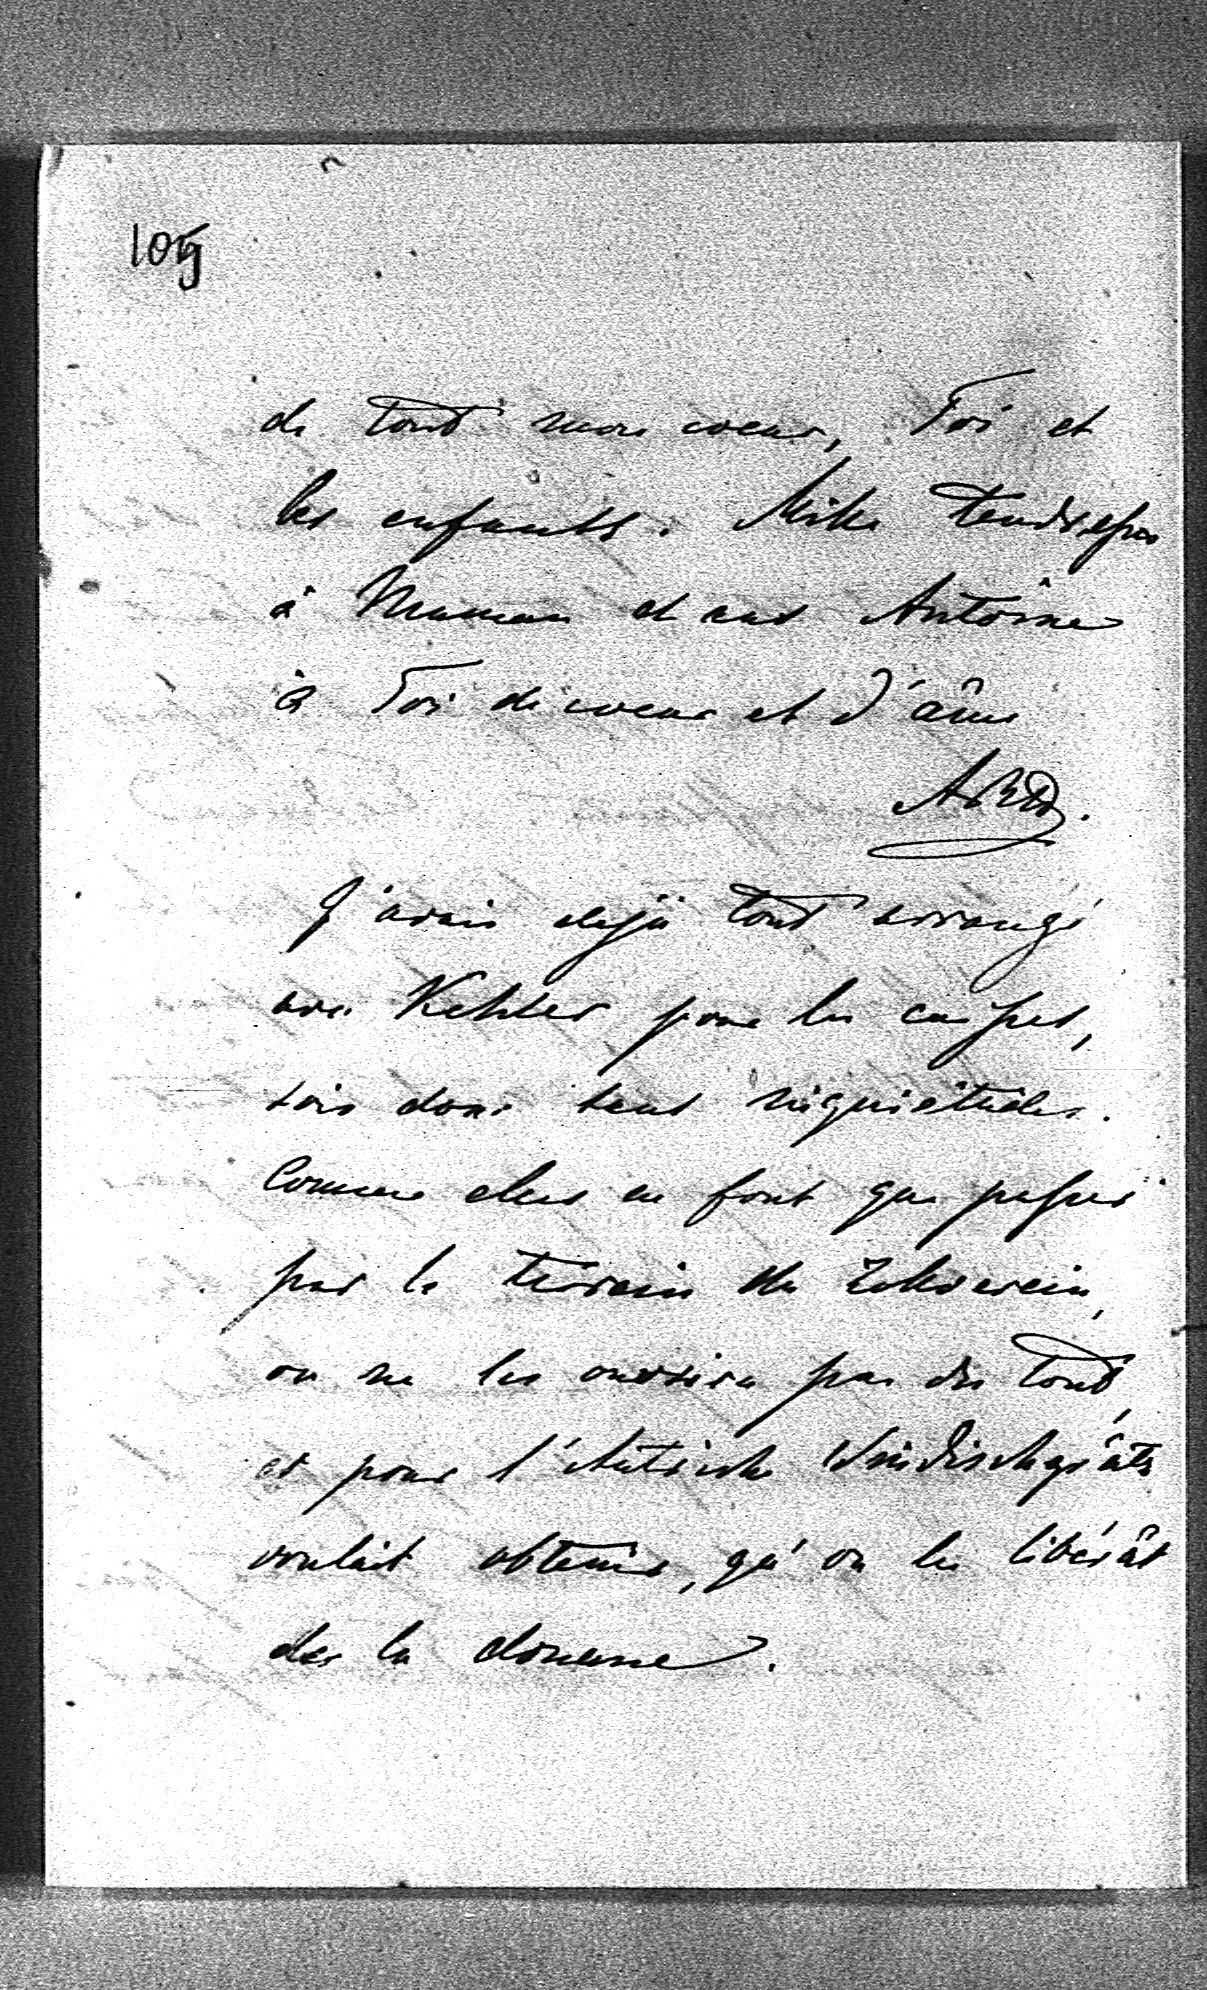 105
de tout mon coeur, Toi et
les enfants. Mille tendresses
à Maman et aux Antoine
à Toi de coeur et d'âme
J'avais déjà tout arrangé
avec Kehler pour les caisses,
sois donc sans inquiétudes.
Comme elles ne font que passer
par le terrain du Zollverein,
on ne les ouvrira pas du tout,
et pour l'Autriche Windischgrätz
voulait obtenir, qu'on les libérât
de la douane.